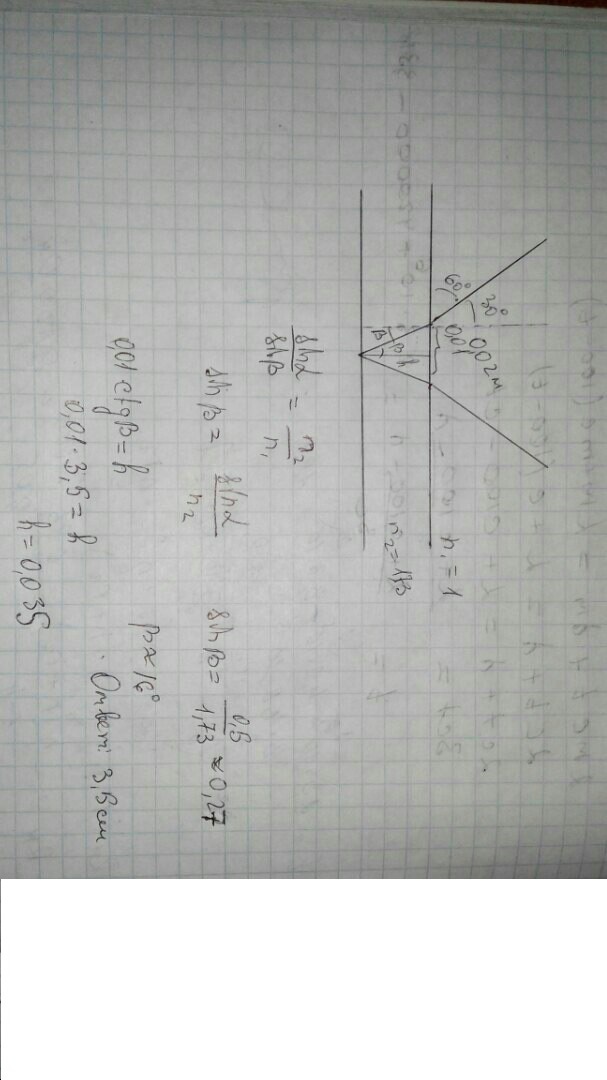 60°
30°
0,02м
0,01
β
β
h
n₁ = 1
n₂ = 1,73
sinα / sinβ = n₂ / n₁
sinβ = sinα / n₂
sinβ = 0,5 / 1,73 ≈ 0,27
β ≈ 16°
0,01 ctgβ = h
0,01 · 3,5 = h
h = 0,035
Ответ: 3,5 см